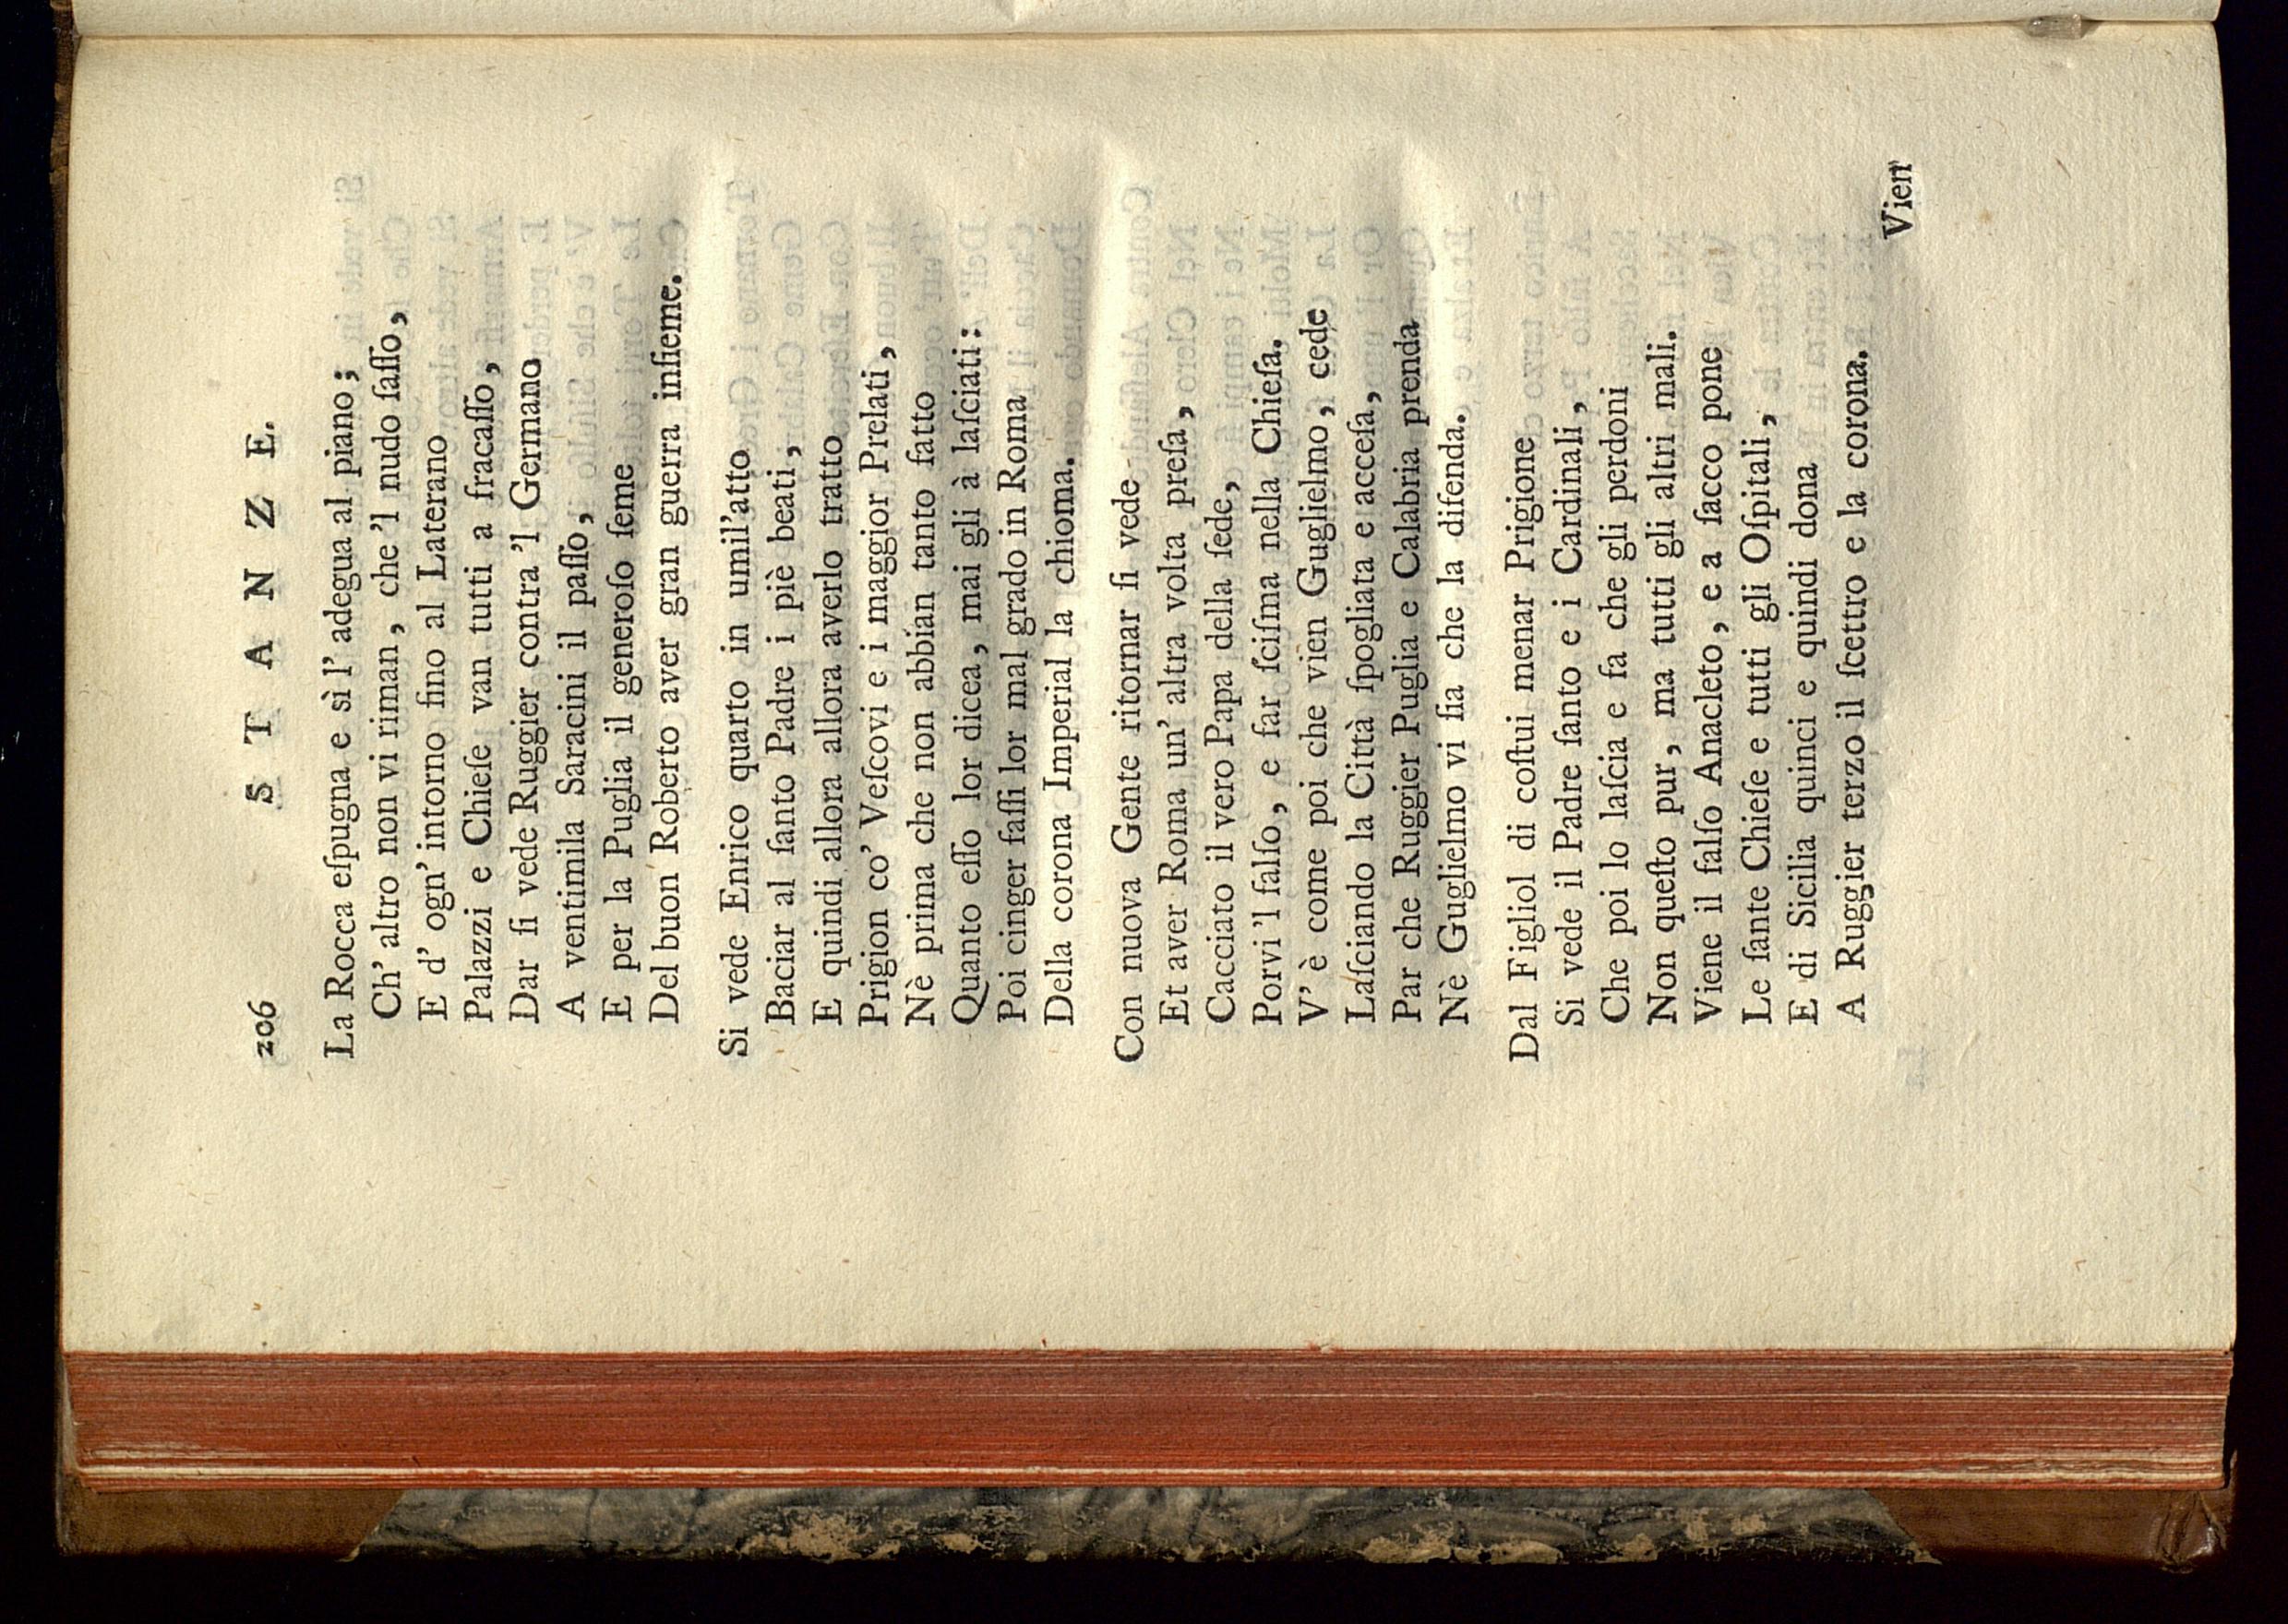 206 STANZE.
La Rocca eſpugna e sì l' adegua al piano;
Ch' altro non vi riman, che 'l nudo ſaſſo,
E d' ogn' intorno fino al Laterano
Palazzi e Chieſe van tutti a fracaſſo,
Dar ſi vede Ruggier contra 'l Germano
A ventimila Saracini il paſſo,
E per la Puglia il generoſo ſeme
Del buon Roberto aver gran guerra inſieme.
Si vede Enrico quarto in umil'atto
Baciar al ſanto Padre i piè beati,
E quindi allora allora averlo tratto
Prigion co' Veſcovi e i maggior Prelati,
Nè prima che non abbian tanto fatto
Quanto eſſo lor dicea, mai gli à laſciati:
Poi cinger faſſi lor mal grado in Roma
Della corona Imperial la chioma.
Con nuova Gente ritornar ſi vede
Et aver Roma un' altra volta preſa,
Cacciato il vero Papa della ſede,
Porvi 'l falſo, e far ſciſma nella Chieſa.
V' è come poi che vien Guglielmo, cede
Laſciando la Città ſpogliata e acceſa,
Par che Ruggier Puglia e Calabria prenda
Nè Guglielmo vi ſia che la difenda.
Dal Figliol di coſtui menar Prigione
Si vede il Padre ſanto e i Cardinali,
Che poi lo laſcia e fa che gli perdoni
Non queſto pur, ma tutti gli altri mali.
Viene il falſo Anacleto, e a ſacco pone
Le ſante Chieſe e tutti gli Oſpitali,
E di Sicilia quinci e quindi dona
A Ruggier terzo il ſcettro e la corona.
Vien